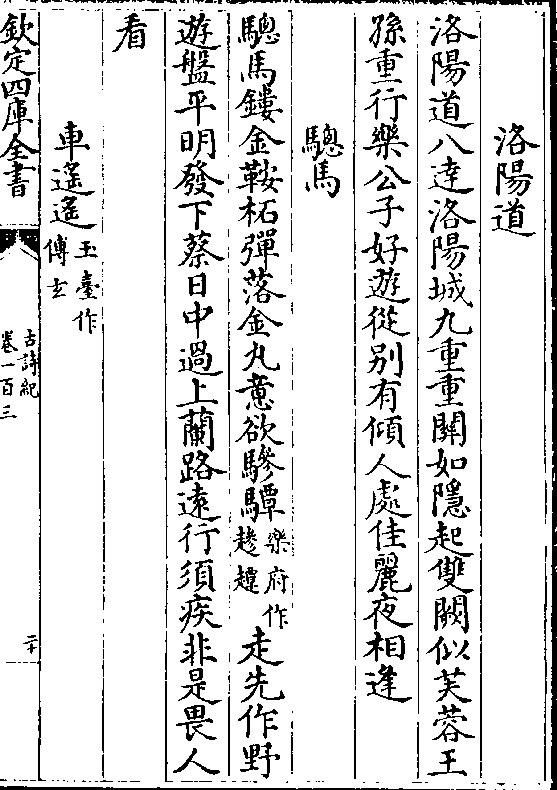 洛陽道
洛陽道八達洛陽城九重重關如隱起雙闕似芙蓉王
孫重行樂公子好遊從别有傾人處佳麗夜相逢
驄馬
驄馬鏤金鞍柘彈落金丸意欲驂驔樂府作趁趯走先作野
遊盤平明發下蔡日中過上蘭路遠行須疾非是畏人
看
車遥遥玉臺作傅玄
欽定四庫全書
古詩紀
卷一百三
二十